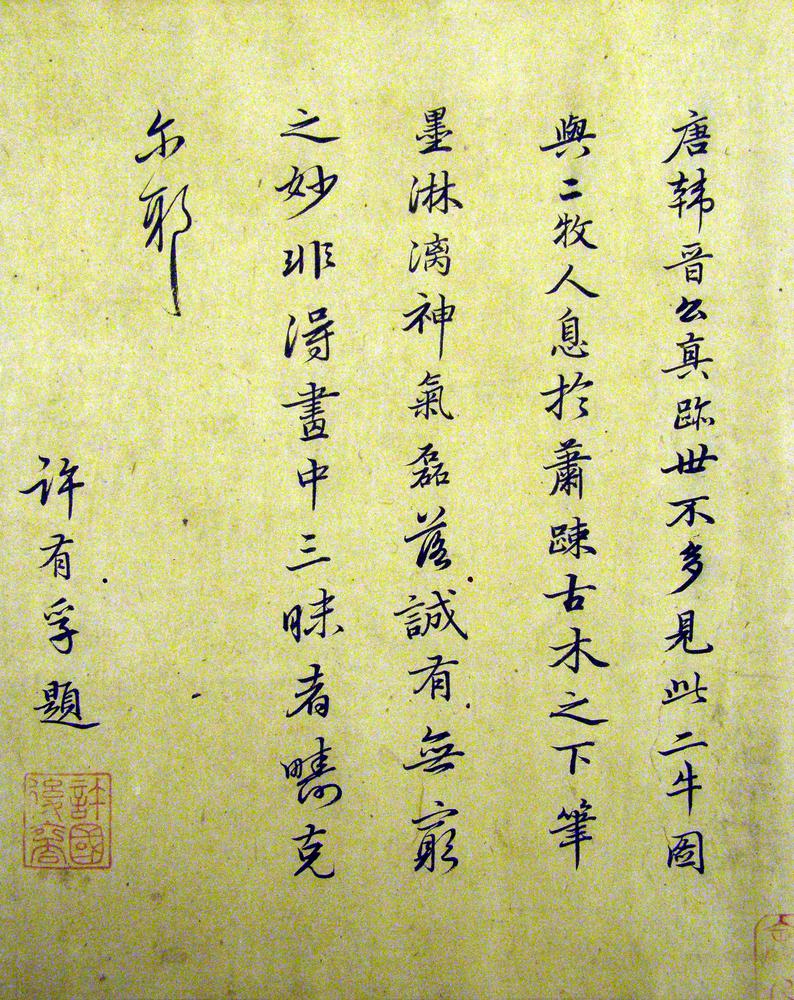 唐韩晋公真跡世不多見此二牛圖
與二牧人息於蕭踈古木之下筆
墨淋漓神氣磊落誠有無窮
之妙非得畫中三昧者疇克
尔耶
許有孚題